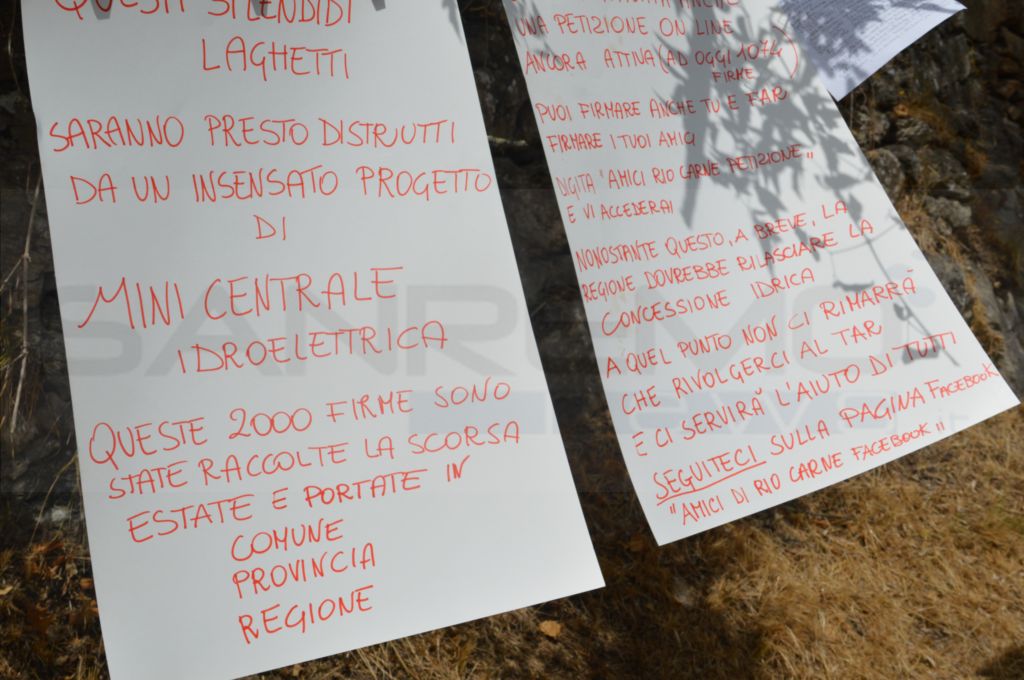 QUESTI SPLENDIDI
LAGHETTI
SARANNO PRESTO DISTRUTTI
DA UN INSENSATO PROGETTO
DI
MINI CENTRALE
IDROELETTRICA
QUESTE 2000 FIRME SONO
STATE RACCOLTE LA SCORSA
ESTATE E PORTATE IN
COMUNE
PROVINCIA
REGIONE
ANCHE
UNA PETIZIONE ON LINE
ANCORA ATTIVA (AD OGGI 1074
FIRME)
PUOI FIRMARE ANCHE TU E FAR
FIRMARE I TUOI AMICI
DIGITA "AMICI RIO CARNE PETIZIONE"
E VI ACCEDERAI
NONOSTANTE QUESTO, A BREVE, LA
REGIONE DOVREBBE RILASCIARE LA
CONCESSIONE IDRICA
A QUEL PUNTO NON CI RIMARRÀ
CHE RIVOLGERCI AL TAR
E CI SERVIRÀ L'AIUTO DI TUTTI
SEGUITECI SULLA PAGINA FACEBOOK
"AMICI DI RIO CARNE FACEBOOK"
SANREMO
news.it